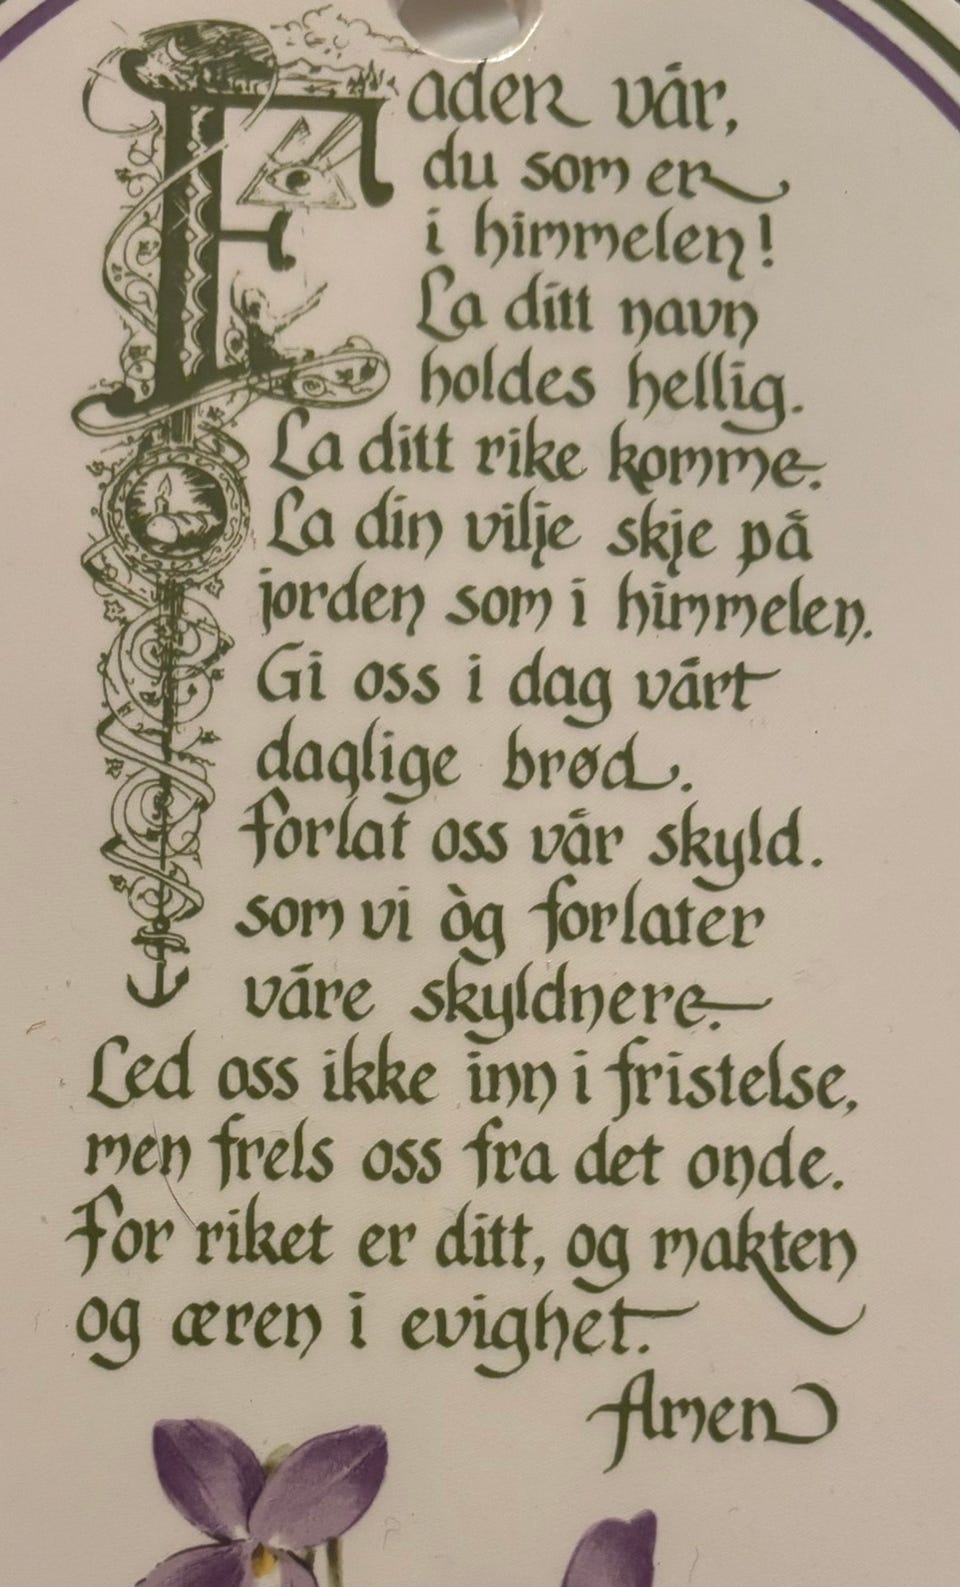 Fader vår,
du som er
i himmelen!
La ditt navn
holdes hellig.
La ditt rike komme.
La din vilje skje på
jorden som i himmelen.
Gi oss i dag vårt
daglige brød.
Forlat oss vår skyld.
som vi òg forlater
våre skyldnere.
Led oss ikke inn i fristelse,
men frels oss fra det onde.
For riket er ditt, og makten
og æren i evighet.
Amen